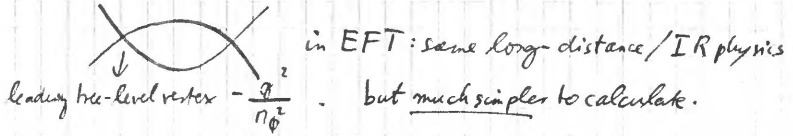 in EFT: same long-distance/IR physics
leading tree-level vertex - g²/m_φ² . but much simpler to calculate.